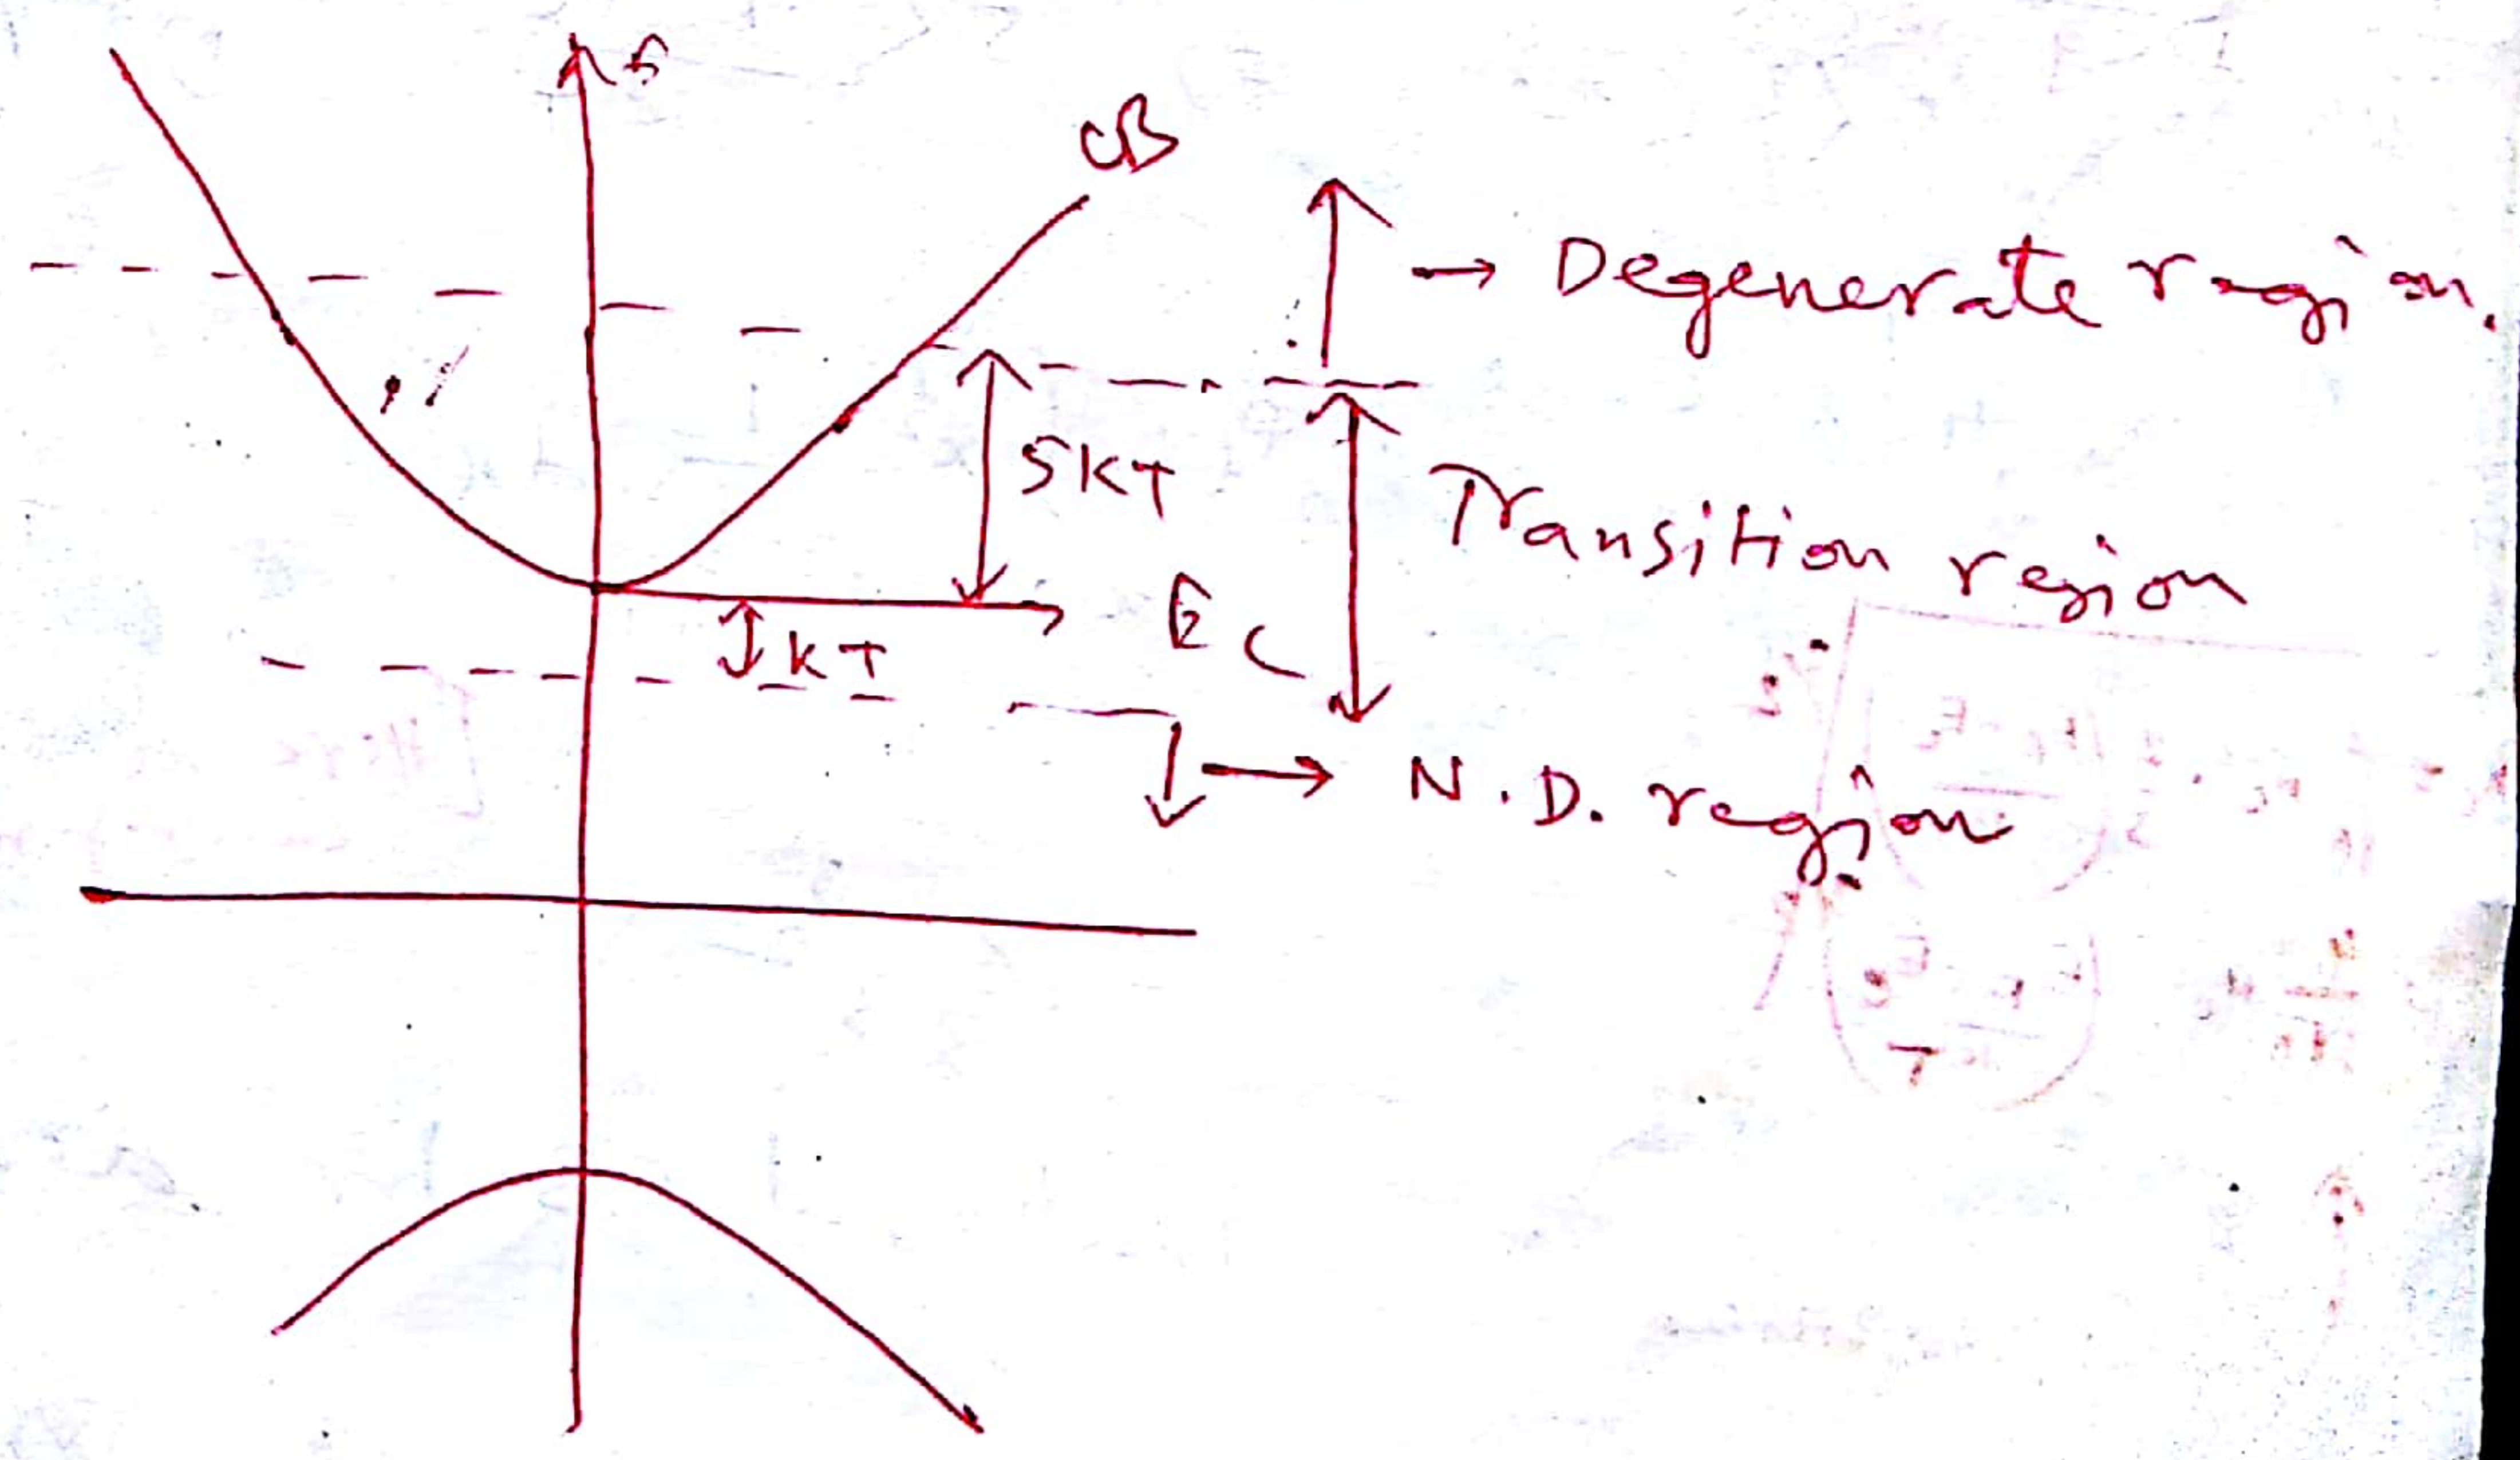 E
CB
→ Degenerate region.
5KT
Transition region
EC
KT
→ N.D. region